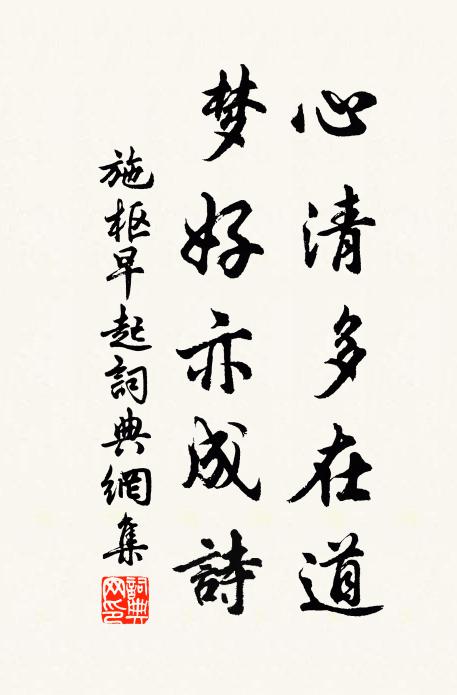 心清多在道
梦好亦成詩
施枢早起詞典網集
詞典网印